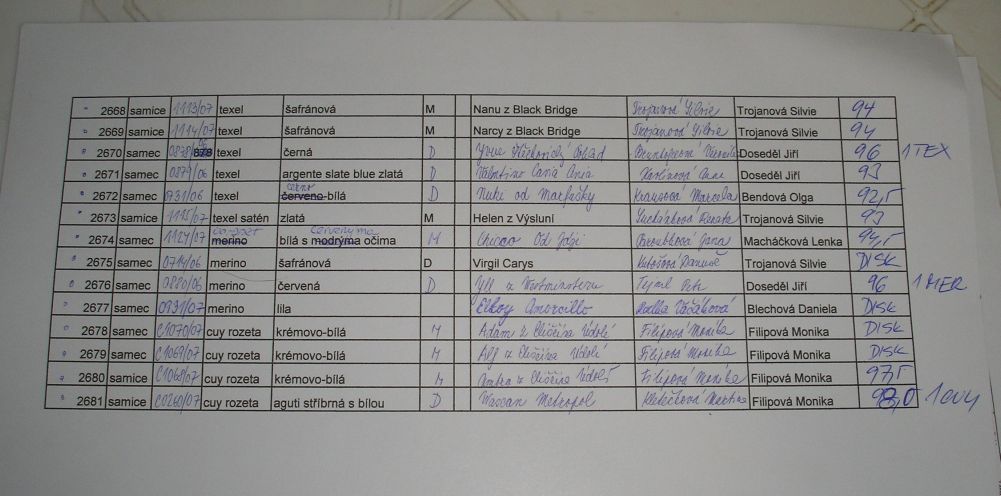 2668 samice 1113/07 texel šafránová M Nanu z Black Bridge Trojanová Silvie Trojanová Silvie 94
2669 samice 1114/07 texel šafránová M Narcy z Black Bridge Trojanová Silvie Trojanová Silvie 94
2670 samec 0878/06 texel černá D Doseděl Jiří 96 1 TEX
2671 samec 0879/06 texel argente slate blue zlatá D Valentino Doseděl Jiří 93
2672 samec 0731/06 texel černo červeno-bílá D Nuki od Krausová Marcela Bendová Olga 92,5
2673 samice 1115/07 texel satén zlatá M Helen z Výsluní Renata Trojanová Silvie 93
2674 samec 1127/07 merino bílá s červenýma modrýma očima M Chicco Od Jana Macháčková Lenka 94,5
2675 samec 0714/06 merino šafránová D Virgil Carys Trojanová Silvie DISK
2676 samec 0880/06 merino červená D z Westminsteru Petr Doseděl Jiří 96 1 MER
2677 samec 0931/07 merino lila Amorcillo Radka Blechová Daniela DISK
2678 samec C1070/07 cuy rozeta krémovo-bílá M Adam z Filipová Monika Filipová Monika DISK
2679 samec C1069/07 cuy rozeta krémovo-bílá M Alf z Filipová Monika Filipová Monika DISK
2680 samice C1068/07 cuy rozeta krémovo-bílá M z Filipová Monika Filipová Monika 97,5
2681 samice C0260/07 cuy rozeta aguti stříbrná s bílou D Metropol Kletečková Martina Filipová Monika 98,0 1 CUY